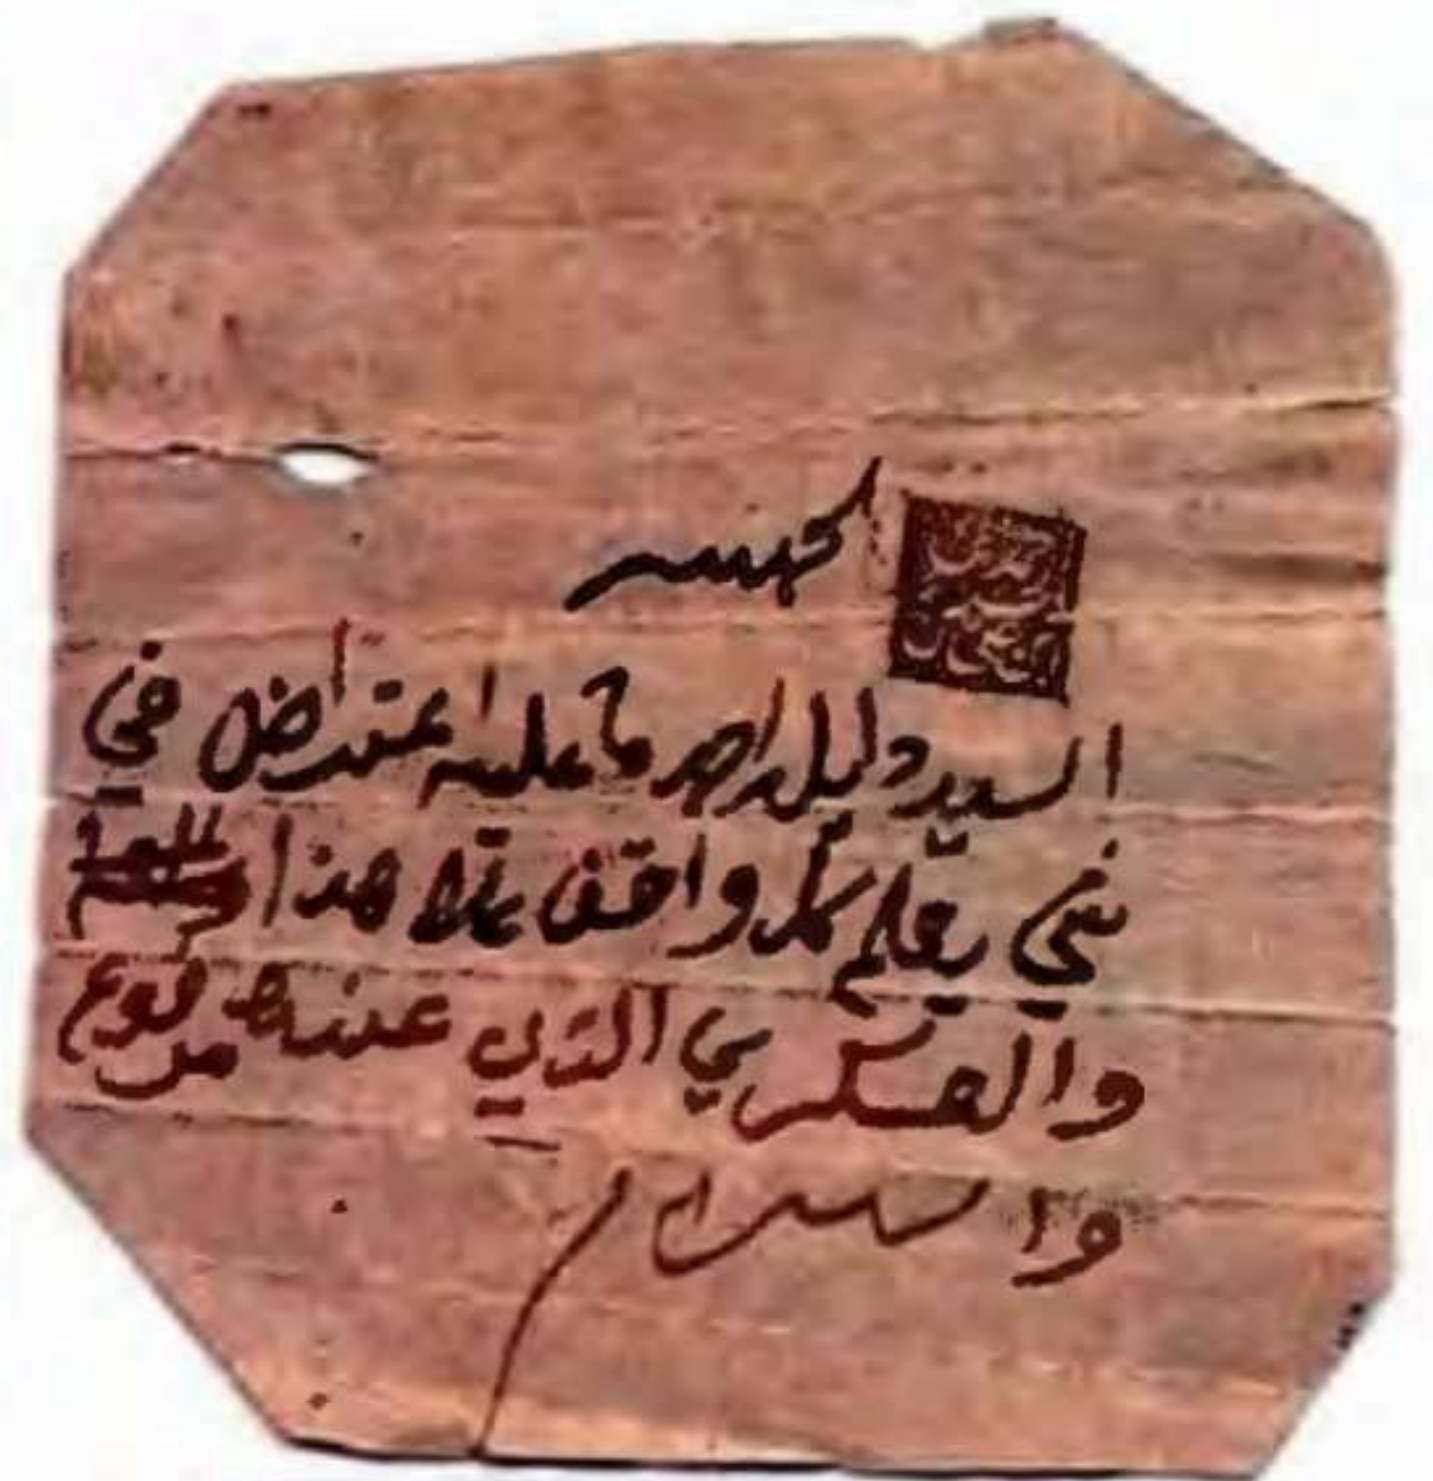 الحمد لله
السيد دليل راجح ما عليه اعتراض في
شي يعلم كل واقف على هذا
والعسكري الذي عنده مرفوع
والسلام